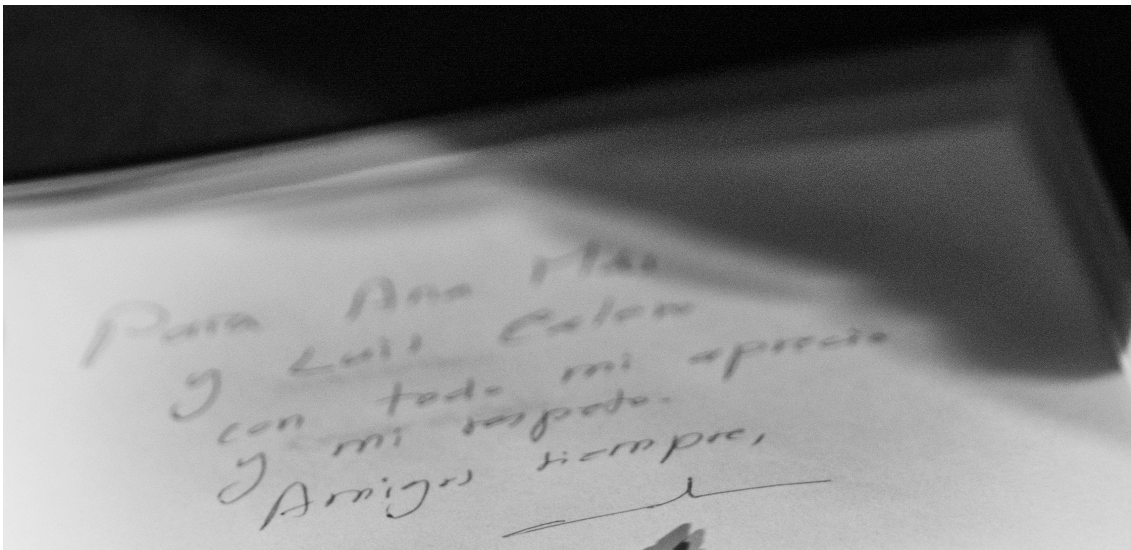 Para Ana
y Luis
con todo mi aprecio
y mi respeto.
Amigos siempre,